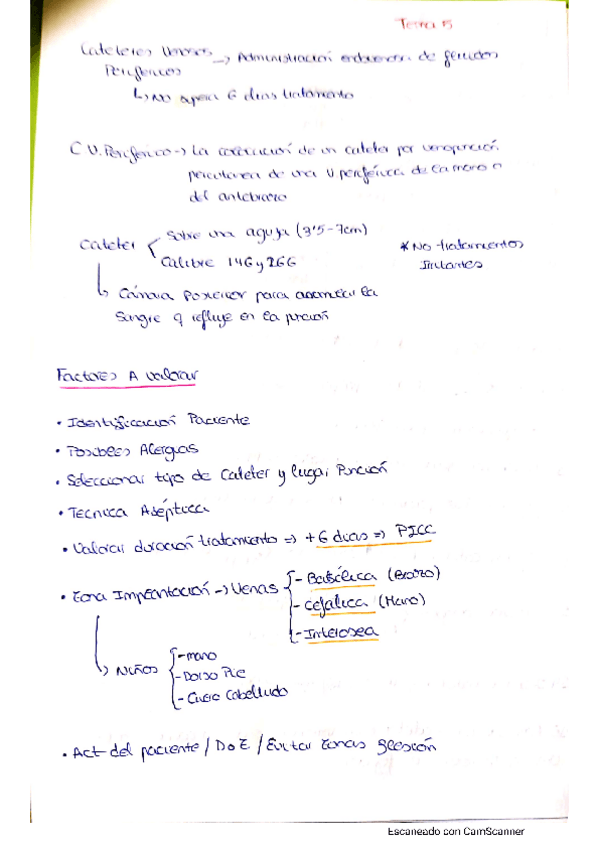 Tema 15
Cateteres Venosos → Administración endovenosa de fluidos
Perifericos
↳ No supera 6 dias tratamiento
C V. Periferico → La colocación de un cateter por venopunción
percutanea de una V periférica de la mano o
del antebrazo
Cateter { Sobre una aguja (3'5-7cm)
Calibre 14G y 26G
* No tratamientos
Irritantes
↳ Cámara Posterior para acumular la
Sangre q refluye en la punción
Factores A valorar
• Identificación Paciente
• Posibles Alergias
• Seleccionar tipo de Cateter y lugar Punción
• Tecnica Aséptica
• Valorar duración tratamiento => +6 dias => PICC
• Zona Implantación → Venas { - Basílica (Brazo)
- Cefalica (Mano)
- Interosea
↳ Niños { - mano
- Dorso Pie
- Cuero Cabelludo
• Act del paciente / D o E / Evitar zonas flexión
Escaneado con CamScanner